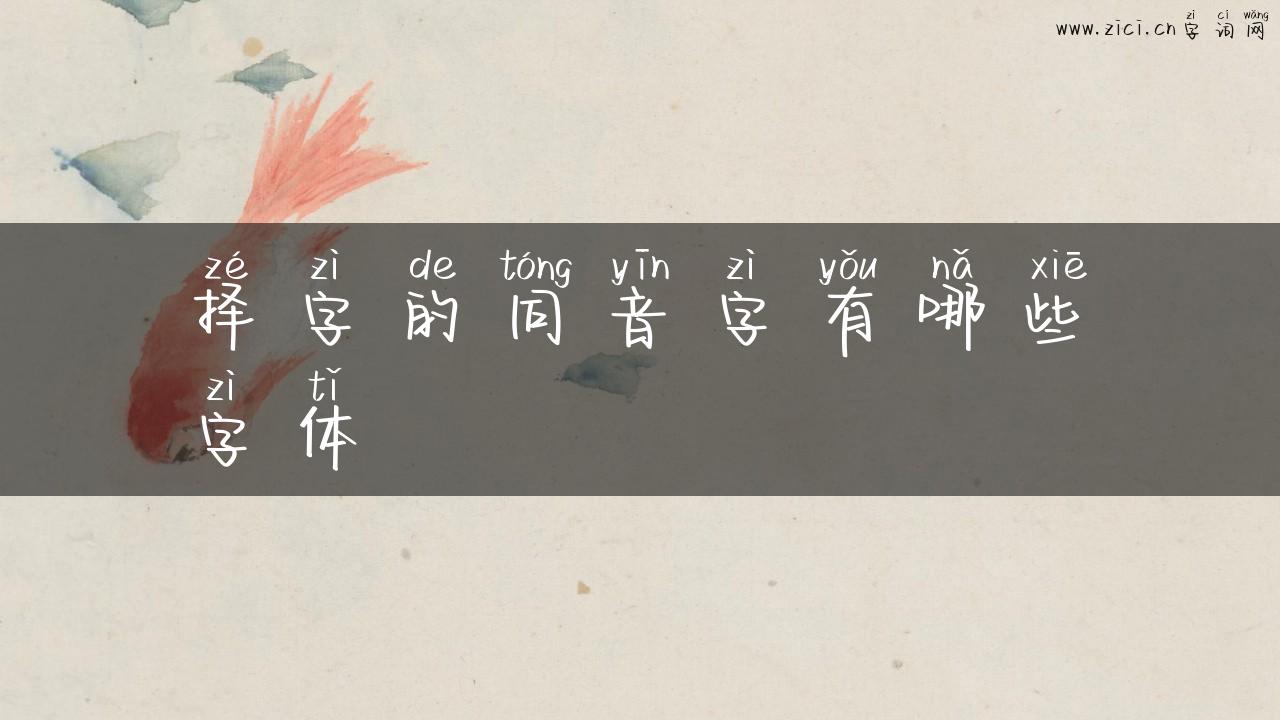 zì cí wǎng
www.zici.cn 字词网
zé zì de tóng yīn zì yǒu nǎ xiē
择字的同音字有哪些
zì tǐ
字体